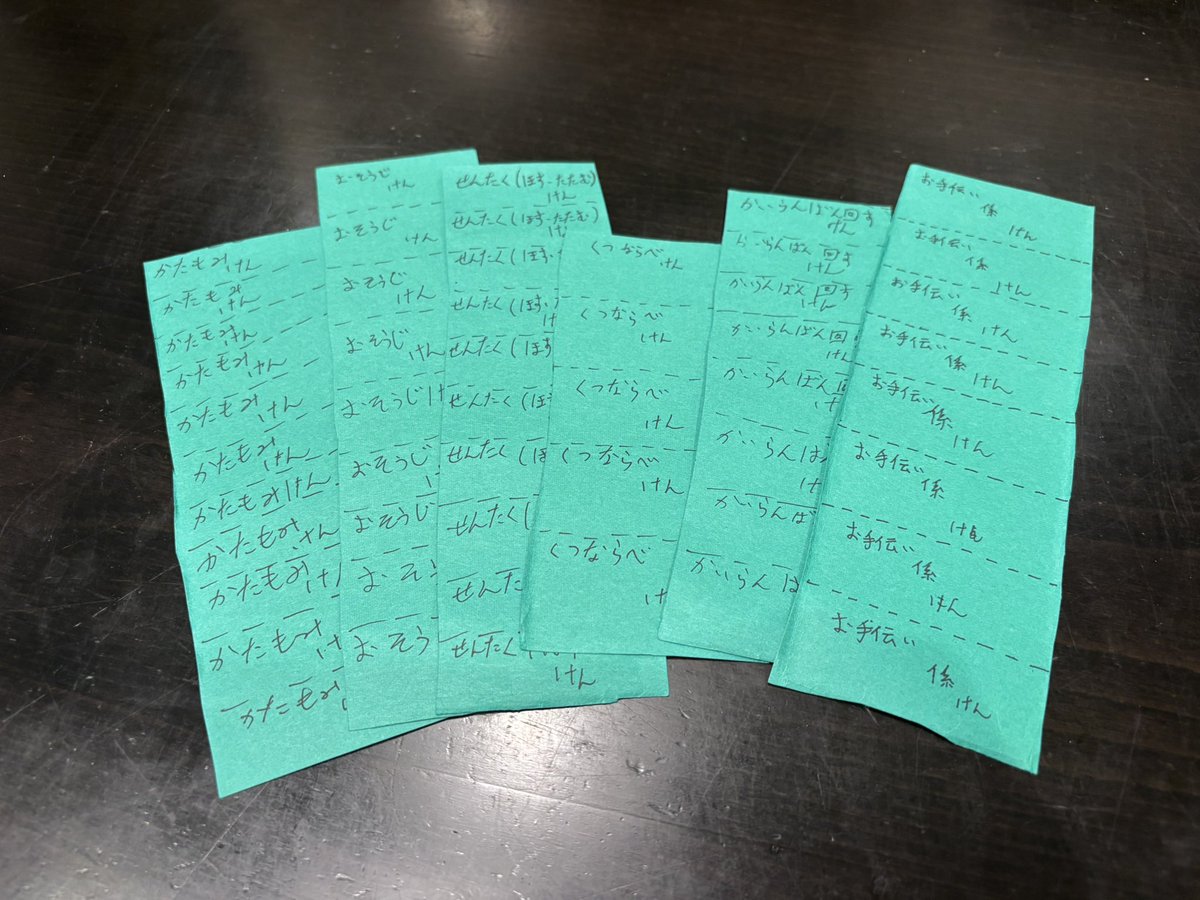 かたもみ
けん
かたもみ
けん
かたもみ
けん
かたもみ
けん
かたもみ
けん
かたもみ
けん
かたもみけん
かたもみ
けん
かたもみ
けん
かたもみ
けん
かたもみ
おそうじ
けん
おそうじ
けん
おそうじ
けん
おそうじ
けん
おそうじけ
おそうじ
おそうじ
おそう
おそう
せんたく(ほす・たたむ)
けん
せんたく(ほす・たたむ)
けん
せんたく(ほす・
せんたく(ほす・
せんたく(ほす
せんたく(ほす
せんたく(ほ
せんたく(
せんた
せんたく(
けん
くつならべ
けん
くつならべ
けん
くつならべ
けん
くつならべ
けん
くつならべ
け
かいらんばん回す
けん
かいらんばん回す
けん
かいらんばん回す
けん
かいらんばん回
けん
かいらんばん
け
かいらんば
け
かいらんば
かいらんば
お手伝い
係
けん
お手伝い
係
けん
お手伝い
係
けん
お手伝い
係
けん
お手伝い
係
けん
お手伝い
係
けん
お手伝い
係
けん
お手伝い
係
けん